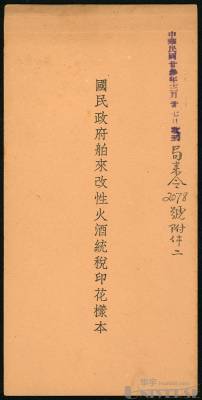 中華民國廿叁年十二月廿七日收到
局來令
2078
號附件二
國民政府舶來改性火酒統稅印花樣本